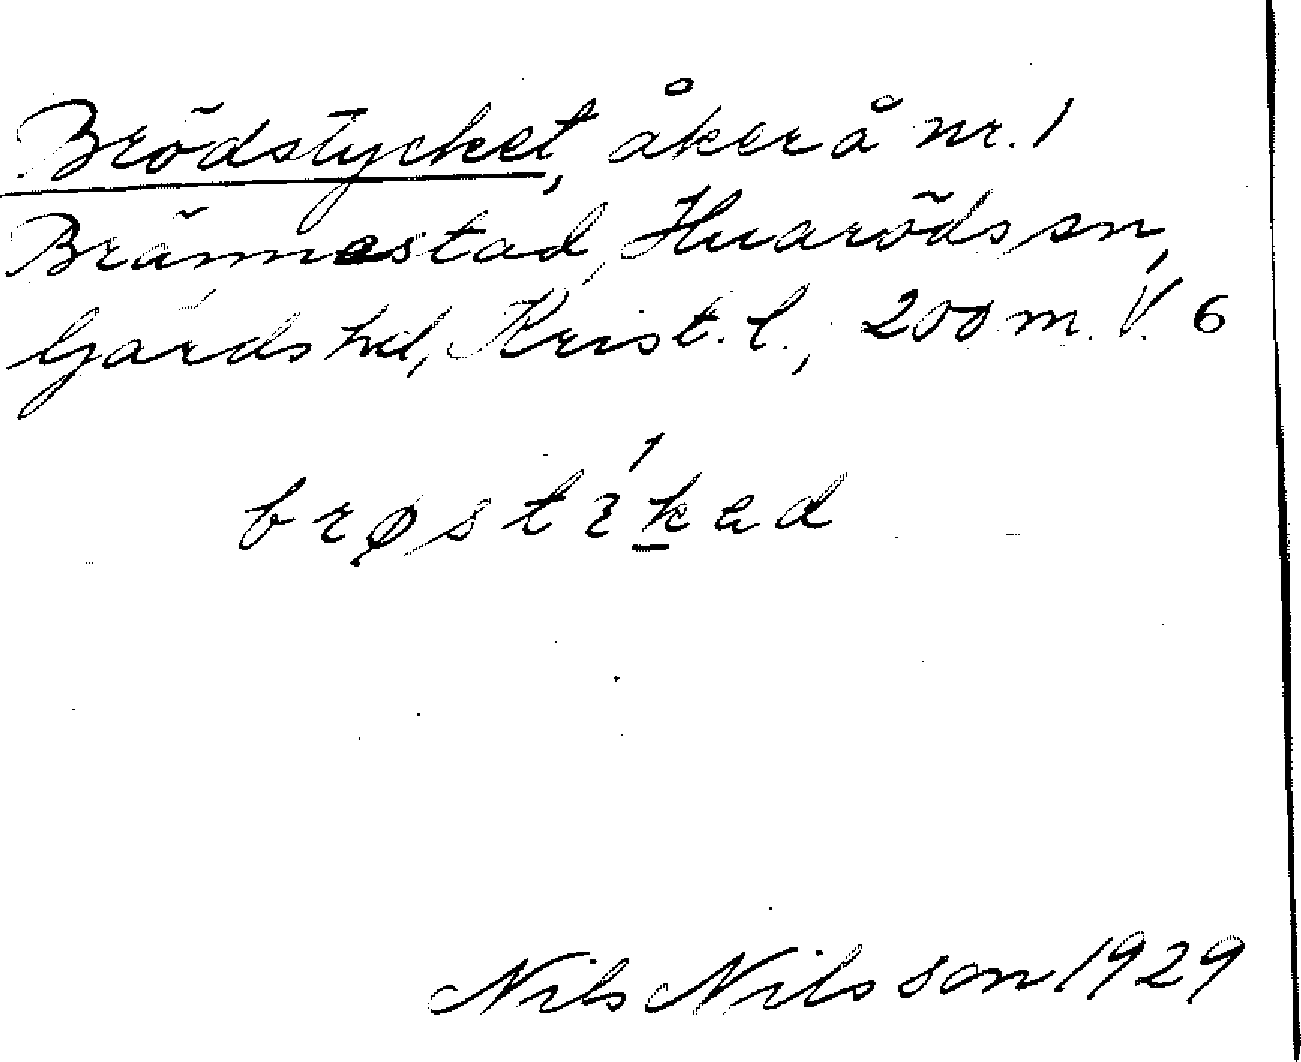 Brödstycket, åker å nr. 1
Brännestad, Huaröds sn,
Gärds hd, Krist. l., 200 m. V. 6
brøstikad
Nils Nilsson 1929